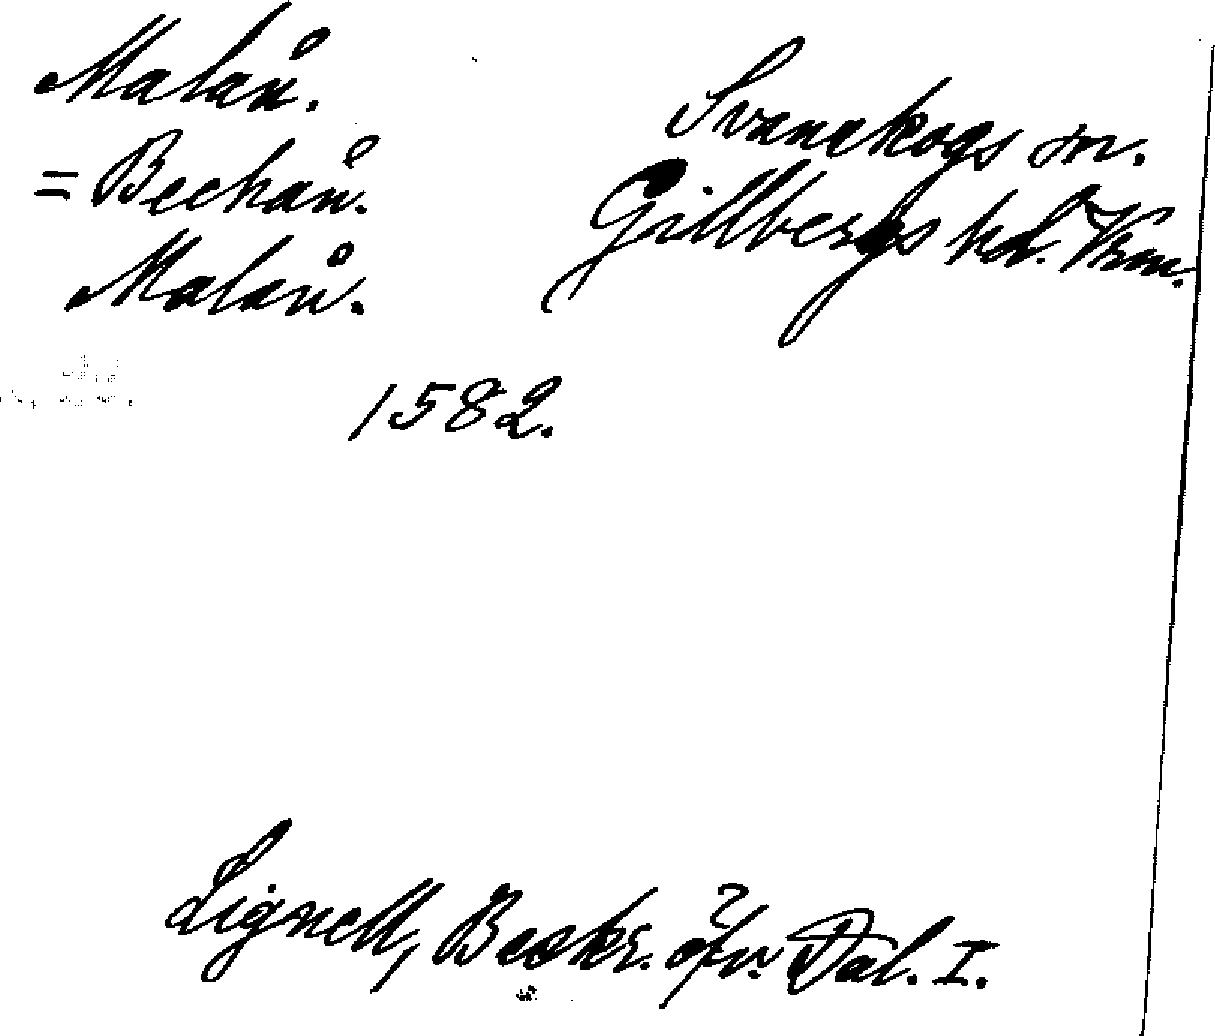 Malån.
= Beckån.
Malån.
Svanskogs sn.
Gillbergs hd. Vrm.
1582.
Lignell, Beskr. öfv. Dal. I.